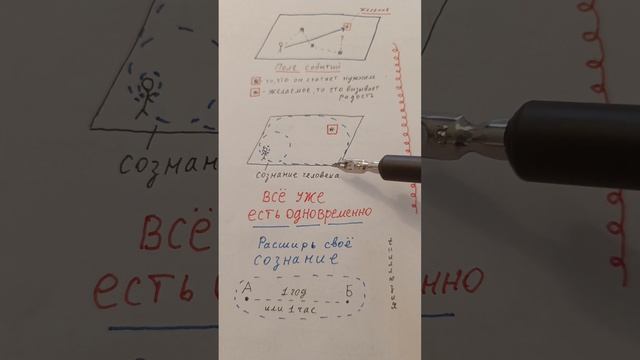 Желаемое
Поле событий
- то, что он считает нужным
- желаемое, то что вызывает
радость
сознание человека
ВСЁ УЖЕ
ЕСТЬ ОДНОВРЕМЕННО
Расширь своё
сознание
А 1 год Б
или 1 час